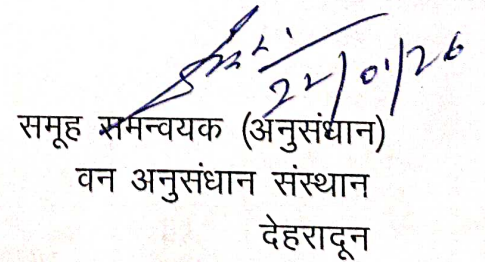 22/01/26
समूह समन्वयक (अनुसंधान)
वन अनुसंधान संस्थान
देहरादून